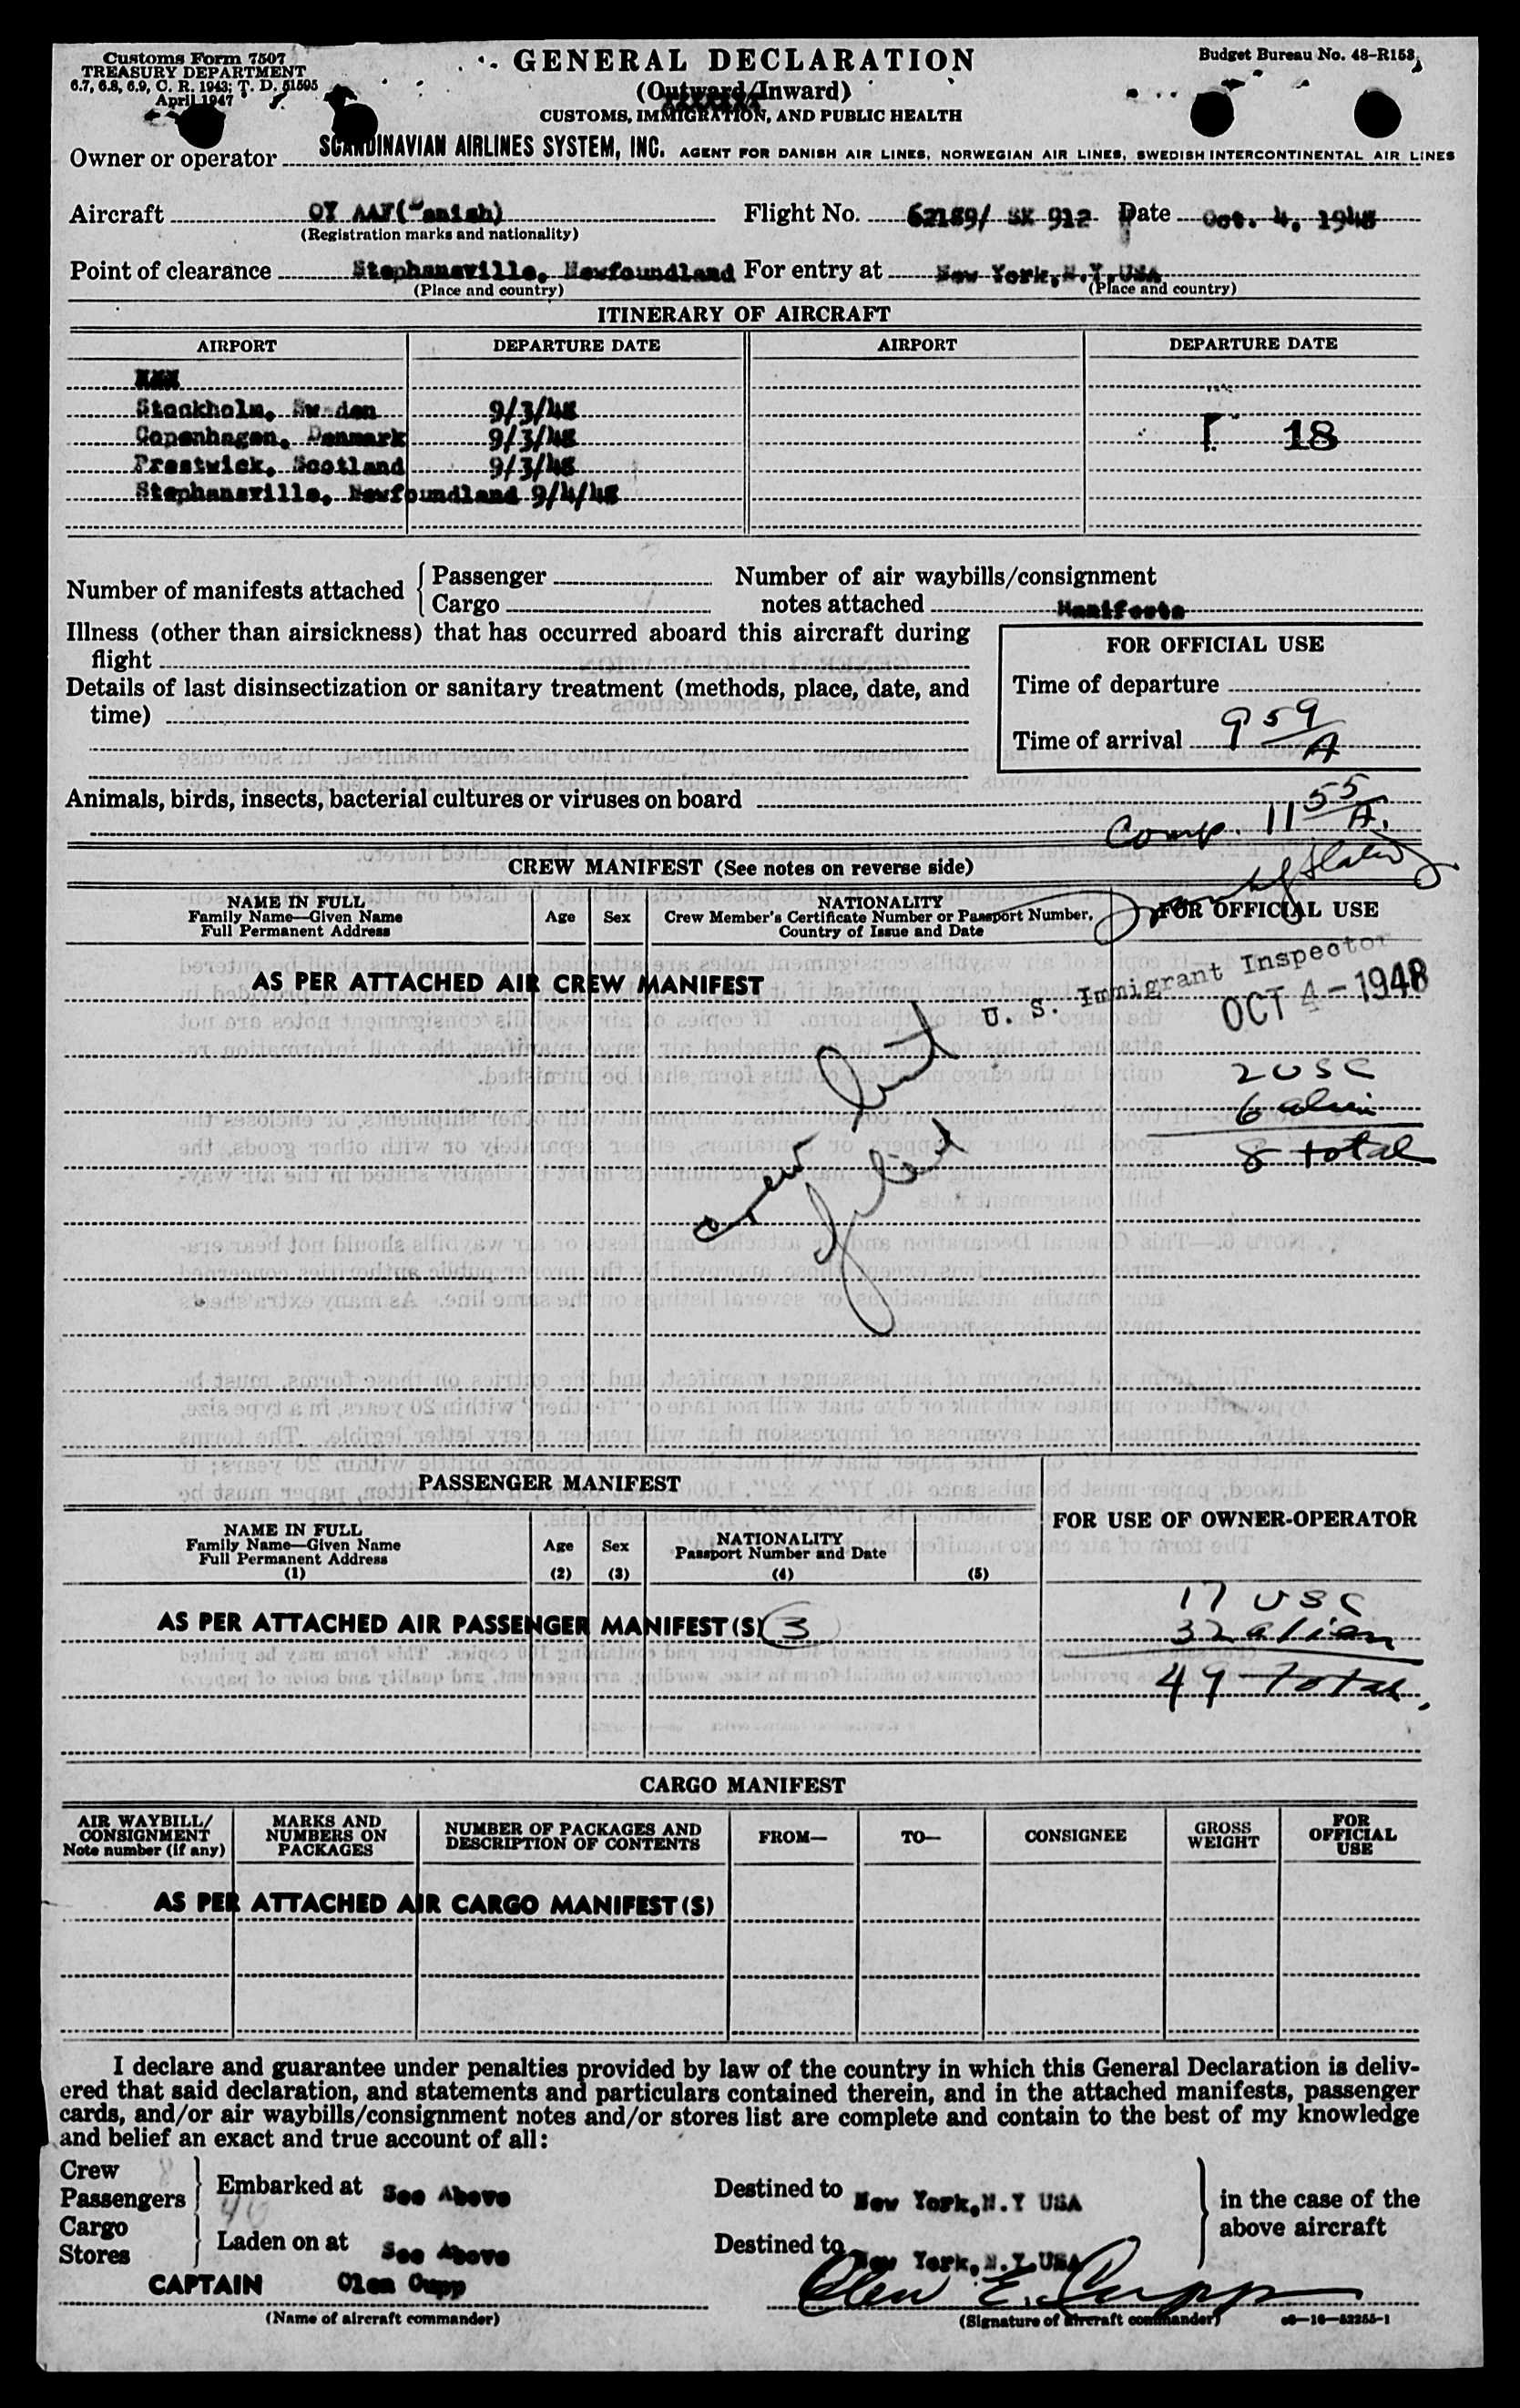 Customs Form 7507
TREASURY DEPARTMENT
6.7, 6.8, 6.9, C. R. 1943; T. D. 51595
April 1947
GENERAL DECLARATION
(Outward/Inward)
CUSTOMS, IMMIGRATION, AND PUBLIC HEALTH
Budget Bureau No. 48-R153.
Owner or operator SCANDINAVIAN AIRLINES SYSTEM, INC. AGENT FOR DANISH AIR LINES, NORWEGIAN AIR LINES, SWEDISH INTERCONTINENTAL AIR LINES
Aircraft OY AAF(Danish) Flight No. 62189/ SK 912 Date Oct. 4, 1948
(Registration marks and nationality)
Point of clearance Stephansville, Newfoundland For entry at New York, N.Y, USA
(Place and country) (Place and country)
ITINERARY OF AIRCRAFT
AIRPORT DEPARTURE DATE AIRPORT DEPARTURE DATE
Stockholm, Sweden 9/3/48
Copenhagen, Denmark 9/3/48 18
Prestwick, Scotland 9/3/48
Stephansville, Newfoundland 9/4/48
Number of manifests attached { Passenger
Cargo
Number of air waybills/consignment
notes attached Manifests
Illness (other than airsickness) that has occurred aboard this aircraft during
flight
Details of last disinsectization or sanitary treatment (methods, place, date, and
time)
FOR OFFICIAL USE
Time of departure
Time of arrival 9 59 A
Animals, birds, insects, bacterial cultures or viruses on board
Comp. 11 55 A.
CREW MANIFEST (See notes on reverse side)
NAME IN FULL
Family Name—Given Name
Full Permanent Address
Age
Sex
NATIONALITY
Crew Member's Certificate Number or Passport Number,
Country of Issue and Date
FOR OFFICIAL USE
AS PER ATTACHED AIR CREW MANIFEST
U. S. Immigrant Inspector
OCT 4 - 1948
2 USC
6 alien
8 total
crew list
filed
PASSENGER MANIFEST
NAME IN FULL
Family Name—Given Name
Full Permanent Address
(1)
Age
(2)
Sex
(3)
NATIONALITY
Passport Number and Date
(4)
(5)
FOR USE OF OWNER-OPERATOR
AS PER ATTACHED AIR PASSENGER MANIFEST(S) 3
17 USC
32 alien
49 total.
CARGO MANIFEST
AIR WAYBILL/
CONSIGNMENT
Note number (if any)
MARKS AND
NUMBERS ON
PACKAGES
NUMBER OF PACKAGES AND
DESCRIPTION OF CONTENTS
FROM—
TO—
CONSIGNEE
GROSS
WEIGHT
FOR
OFFICIAL
USE
AS PER ATTACHED AIR CARGO MANIFEST(S)
I declare and guarantee under penalties provided by law of the country in which this General Declaration is deliv-
ered that said declaration, and statements and particulars contained therein, and in the attached manifests, passenger
cards, and/or air waybills/consignment notes and/or stores list are complete and contain to the best of my knowledge
and belief an exact and true account of all:
Crew 8
Passengers Embarked at See Above Destined to New York, N.Y USA
Cargo
Stores Laden on at See Above Destined to New York, N.Y.USA
in the case of the
above aircraft
CAPTAIN Olen Cupp Olen E. Cupp
(Name of aircraft commander) (Signature of aircraft commander) 16—52255-1